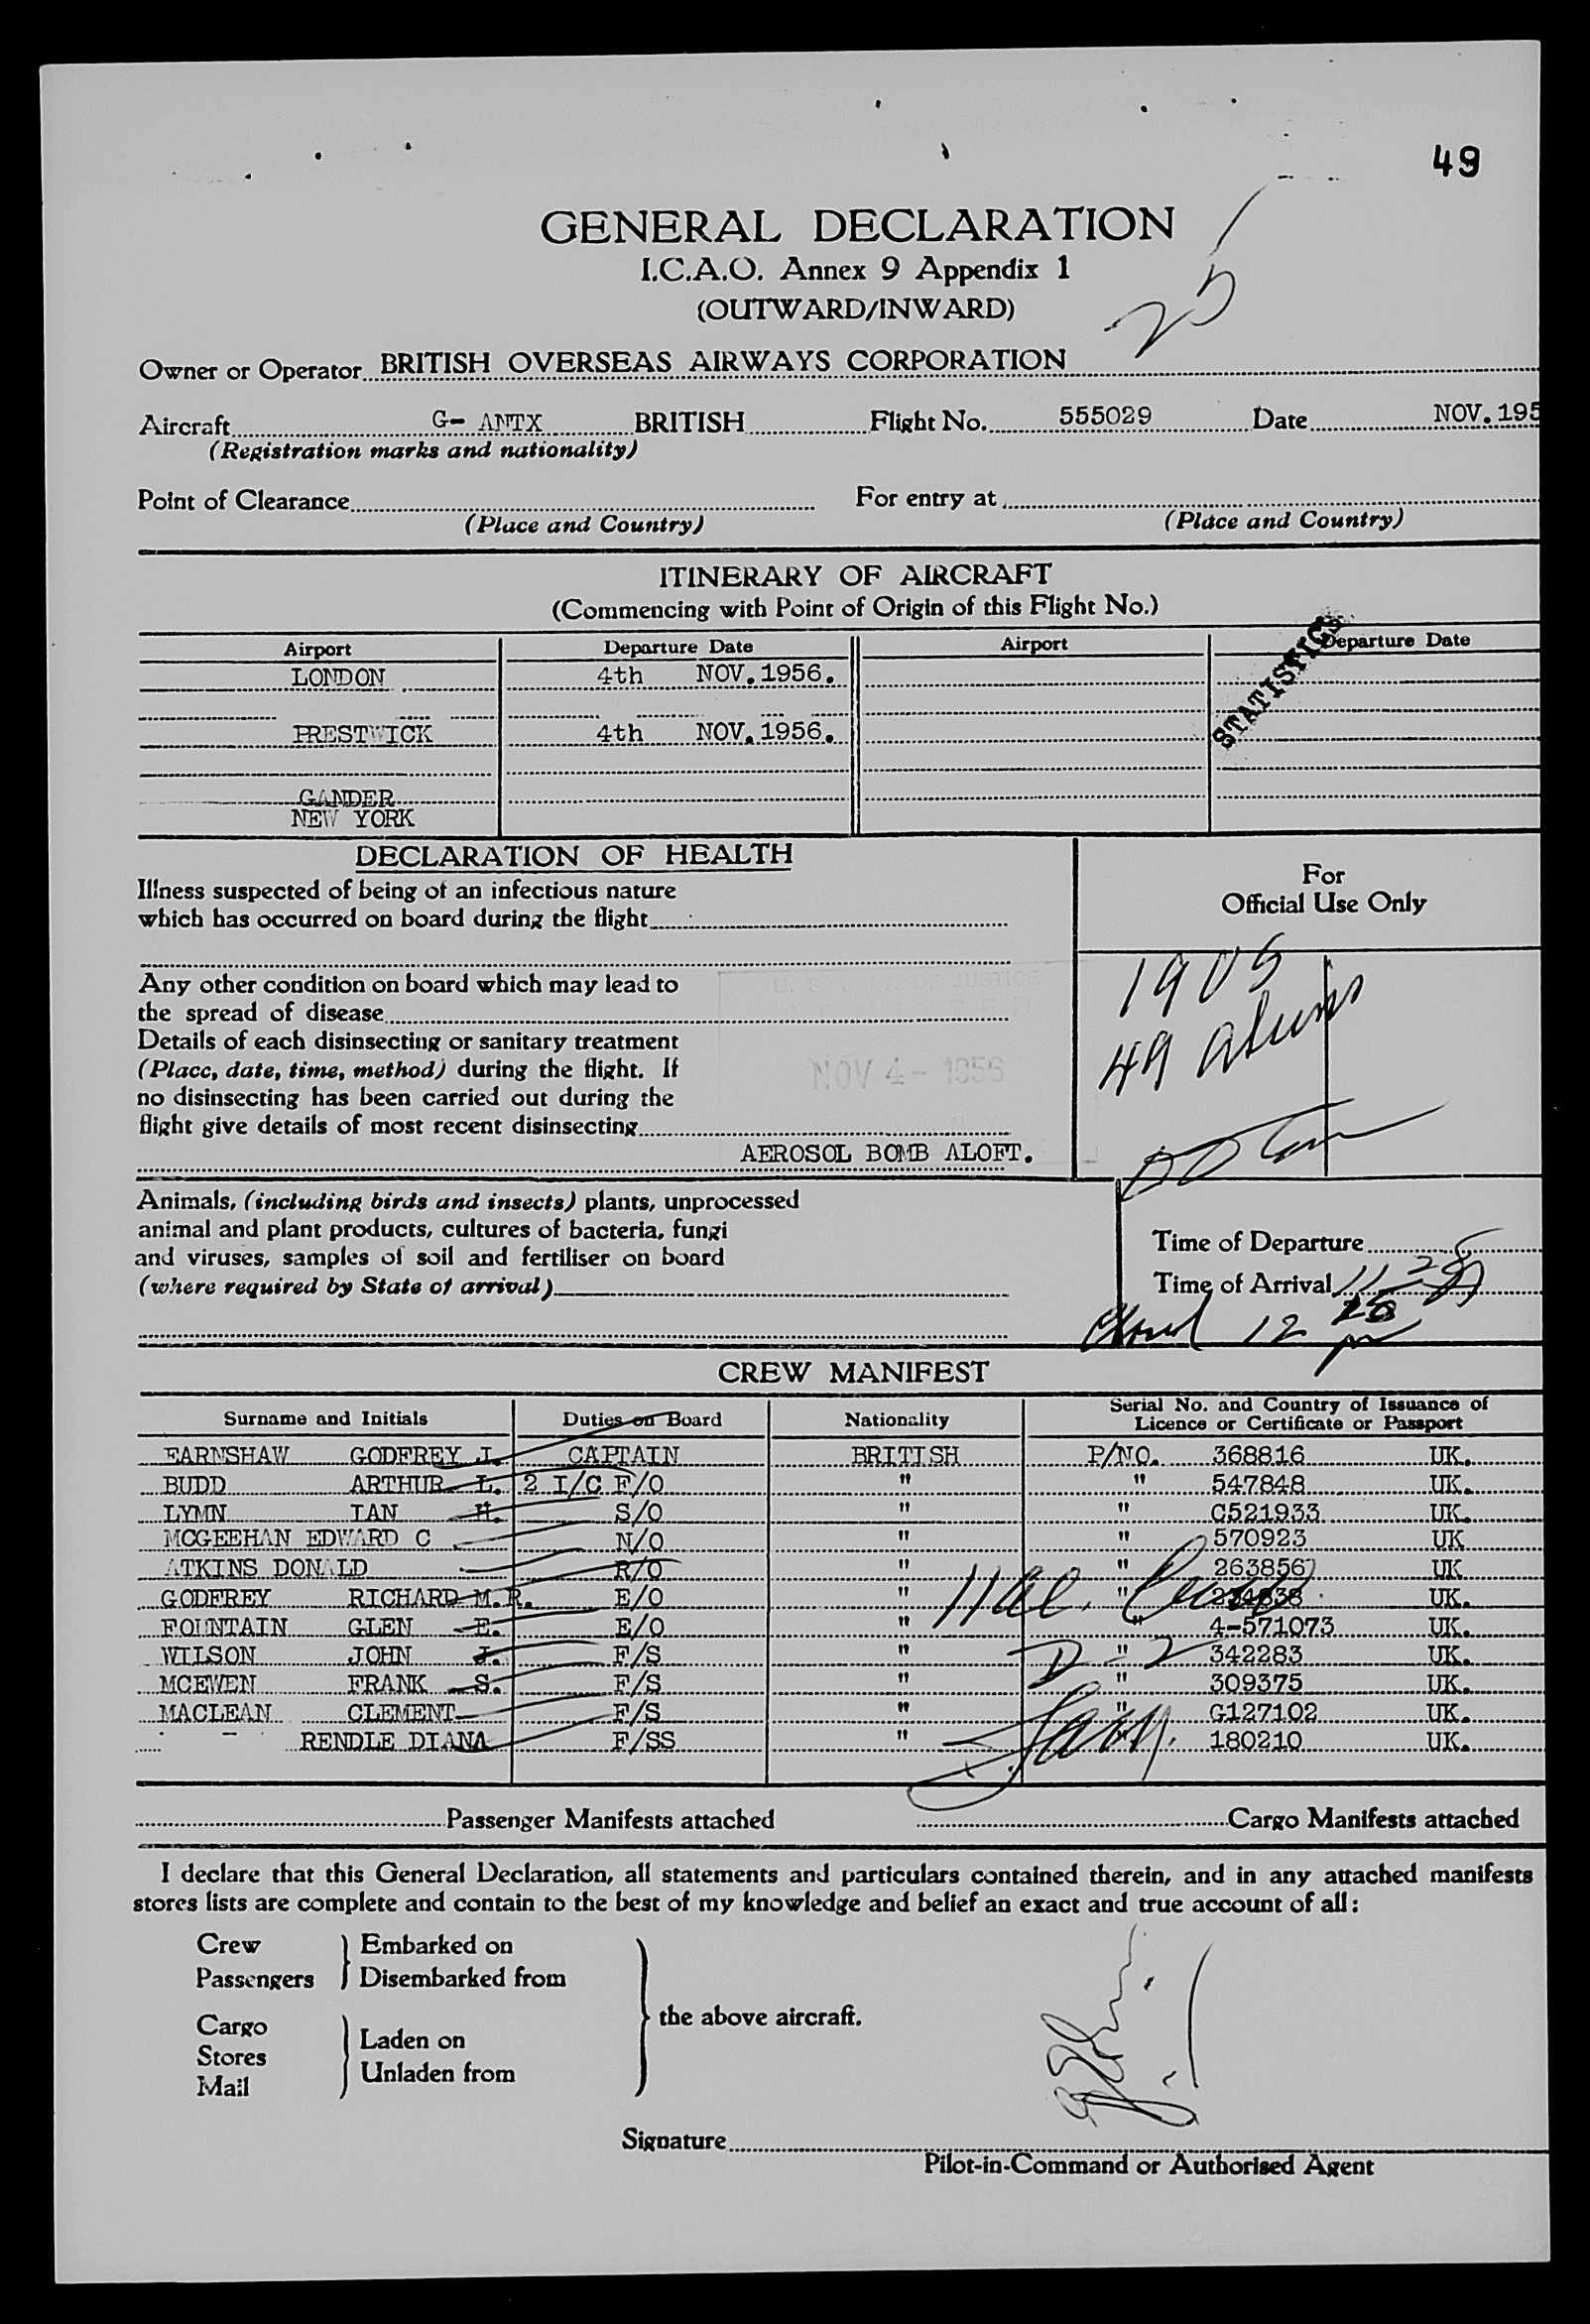 49
GENERAL DECLARATION
I.C.A.O. Annex 9 Appendix 1
(OUTWARD/INWARD)
25
Owner or Operator BRITISH OVERSEAS AIRWAYS CORPORATION
Aircraft G- ANTX BRITISH Flight No. 555029 Date NOV. 195
(Registration marks and nationality)
Point of Clearance For entry at
(Place and Country) (Place and Country)
ITINERARY OF AIRCRAFT
(Commencing with Point of Origin of this Flight No.)
Airport Departure Date Airport Departure Date
STATISTICS
LONDON 4th NOV. 1956.
PRESTWICK 4th NOV. 1956.
GANDER
NEW YORK
DECLARATION OF HEALTH
Illness suspected of being of an infectious nature
which has occurred on board during the flight
Any other condition on board which may lead to
the spread of disease
Details of each disinsecting or sanitary treatment
(Place, date, time, method) during the flight. If
no disinsecting has been carried out during the
flight give details of most recent disinsecting
NOV 4 - 1956
AEROSOL BOMB ALOFT.
For
Official Use Only
1905
49 aliens
Animals, (including birds and insects) plants, unprocessed
animal and plant products, cultures of bacteria, fungi
and viruses, samples of soil and fertiliser on board
(where required by State of arrival)
Time of Departure
Time of Arrival 11
12
CREW MANIFEST
Surname and Initials Duties on Board Nationality Serial No. and Country of Issuance of Licence or Certificate or Passport
EARNSHAW GODFREY J. CAPTAIN BRITISH P/NO. 368816 UK.
BUDD ARTHUR L. 2 I/C F/O " " 547848 UK.
LYMN IAN H. S/O " " C521933 UK.
MCGEEHAN EDWARD C N/O " " 570923 UK
ATKINS DONALD R/O " " 263856 UK
GODFREY RICHARD M.R. E/O " " UK.
FOUNTAIN GLEN E. E/O " " 4-571073 UK.
WILSON JOHN J. F/S " " 342283 UK.
MCEWEN FRANK S. F/S " " 309375 UK.
MACLEAN CLEMENT F/S " " G127102 UK.
RENDLE DIANA F/SS " " 180210 UK.
D-2
Passenger Manifests attached Cargo Manifests attached
I declare that this General Declaration, all statements and particulars contained therein, and in any attached manifests
stores lists are complete and contain to the best of my knowledge and belief an exact and true account of all:
Crew Embarked on
Passengers Disembarked from
the above aircraft.
Cargo
Stores
Mail
Laden on
Unladen from
Signature
Pilot-in-Command or Authorised Agent